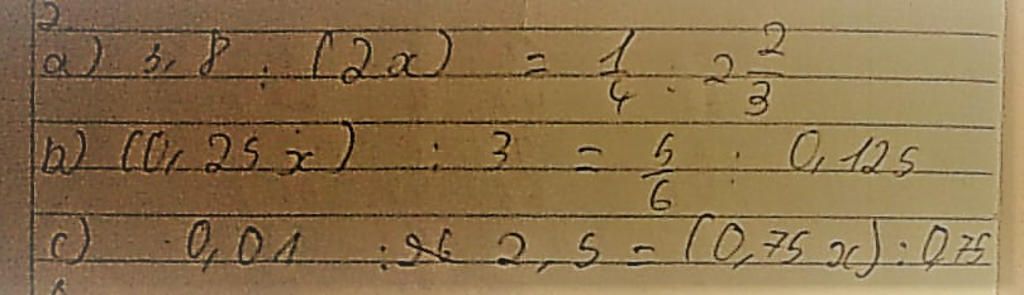 2
a) 3,8 : (2x) = 1/4 : 2 2/3
b) (0,25x) : 3 = 5/6 : 0,125
c) 0,01 : 2,5 = (0,75x) : 0,75